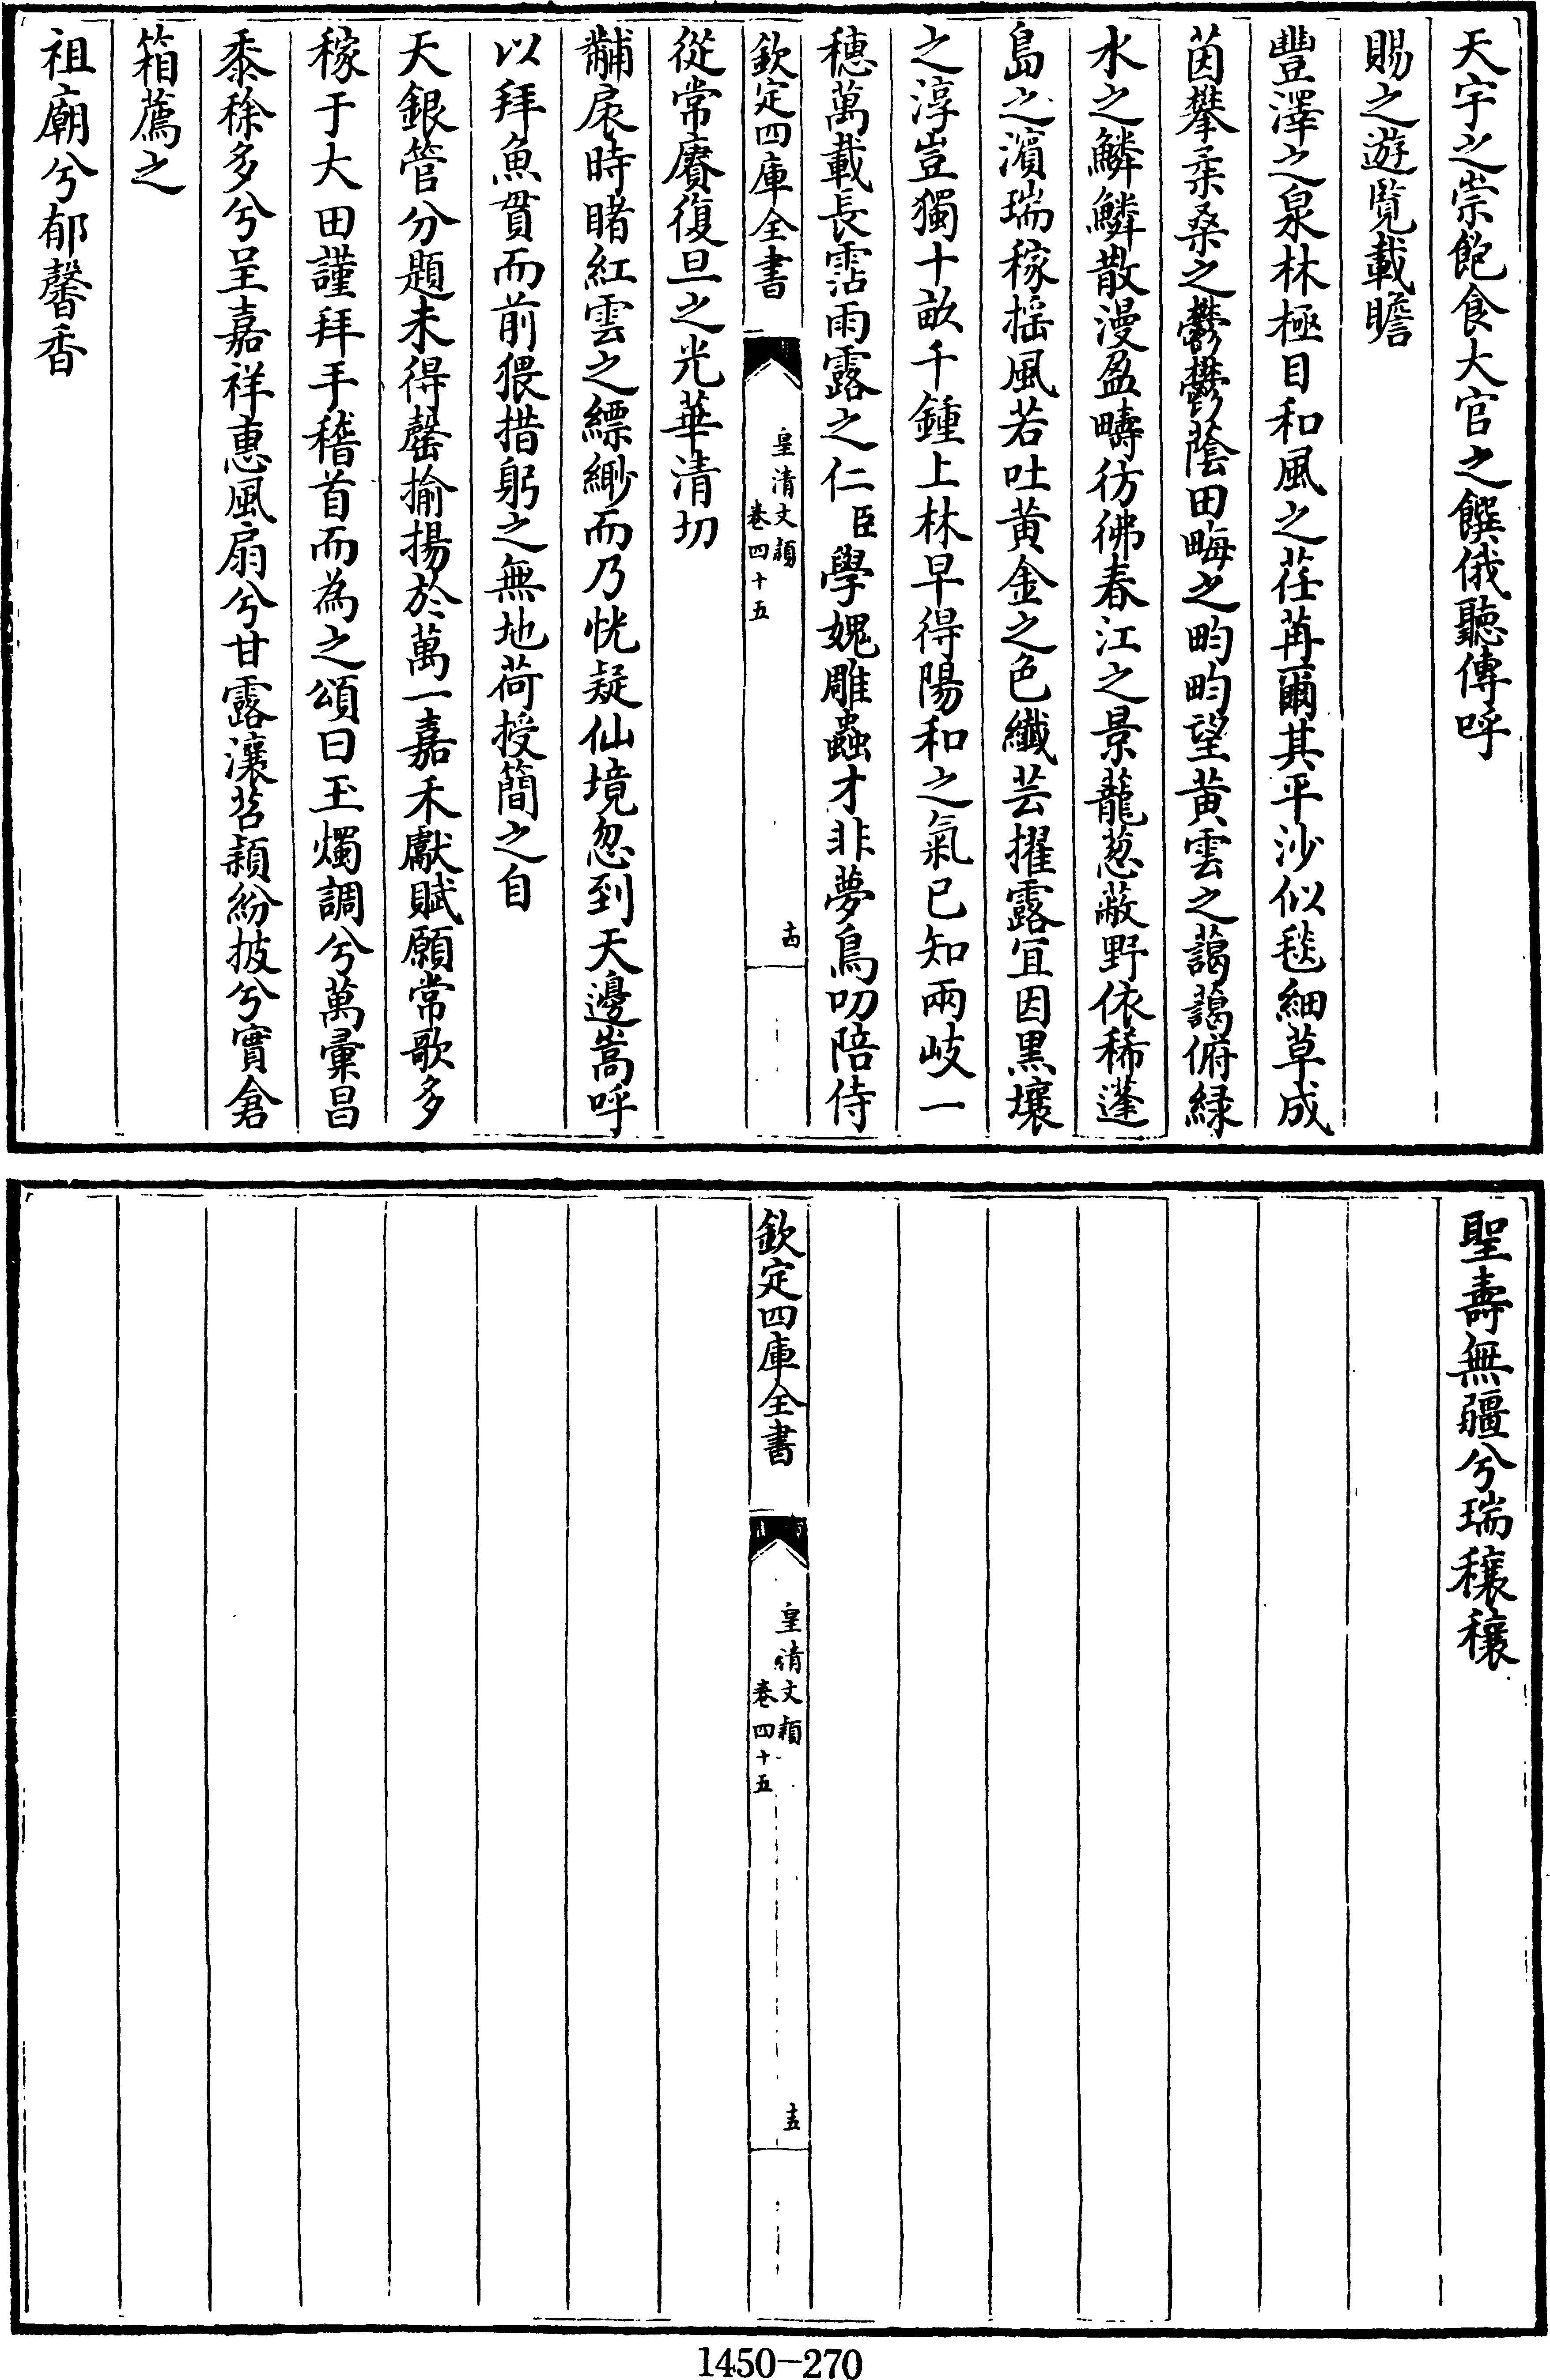 天宇之崇飽食大官之饌俄聽傳呼
賜之遊覧載瞻
豐澤之泉林極目和風之荏苒爾其平沙似毯細草成
茵攀柔桑之鬱鬱蔭田畮之畇畇望黄雲之藹藹俯緑
水之鱗鱗散漫盈疇彷彿春江之景蘢葱蔽野依稀蓬
島之濱瑞稼揺風若吐黄金之色纖芸擢露宜因黒壤
之淳豈獨十畝千鍾上林早得陽和之氣已知兩岐一
穗萬載長霑雨露之仁臣學媿雕蟲才非夢鳥叨陪侍
欽定四庫全書
皇清文穎
卷四十五
十四
從常賡復旦之光華清切
黼扆時睹紅雲之縹緲而乃恍疑仙境忽到天邊嵩呼
以拜魚貫而前猥措躬之無地荷授簡之自
天銀管分題未得罄揄揚於萬一嘉禾獻賦願常歌多
稼于大田謹拜手稽首而為之頌曰玉燭調兮萬彚昌
黍稌多兮呈嘉祥惠風扇兮甘露瀼苕穎紛披兮實倉
箱薦之
祖廟兮郁馨香
聖壽無疆兮瑞穰穰
欽定四庫全書
皇清文穎
卷四十五
十五
1450-270